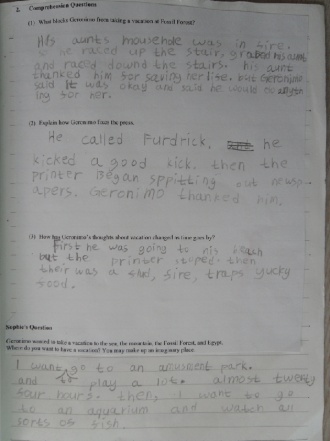 2. Comprehension Questions
(1) What blocks Geronimo from taking a vacation at Fossil Forest?
His aunts mousehole was in fire.
so he raced up the stair, grabed his aunt
and raced downd the stairs. his aunt
thanked him for saving her life. but Geronimo
said it was okay and said he would do anyth
ing for her.
(2) Explain how Geronimo fixes the press.
He called Furdrick, he
kicked a good kick. then the
printer Began sppitting out newsp-
apers. Geronimo thanked him.
(3) How has Geronimo's thoughts about vacation changed as time goes by?
First he was going to his beach
but the printer stoped. then
their was a shed, fire, traps yucky
food.
Sophie's Question
Geronimo wanted to take a vacation to the sea, the mountain, the Fossil Forest, and Egypt.
Where do you want to have a vacation? You may make up an imaginary place.
I want go to an amusment park.
and play a lot. almost twenty
four hours. then, I want to go
to an aquarium and watch all
sorts of fish.